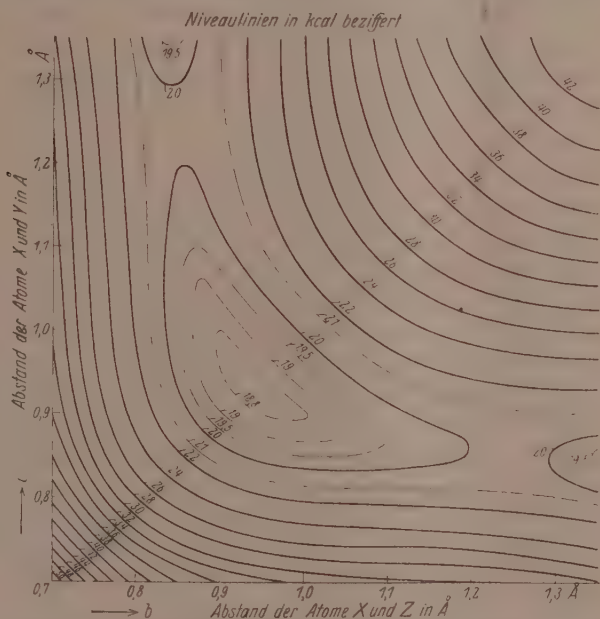 Niveaulinien in kcal beziffert
Å
Abstand der Atome X und Y in Å
1,3
1,2
1,1
1,0
0,9
0,8
0,7
19,5
20
42
40
38
36
34
28
26
24
22
21
20
19,5
19
18,8
19
19,5
20
21
22
24
26
28
30
20
0,7
0,8
0,9
1,0
1,1
1,2
1,3 Å
b
Abstand der Atome X und Z in Å